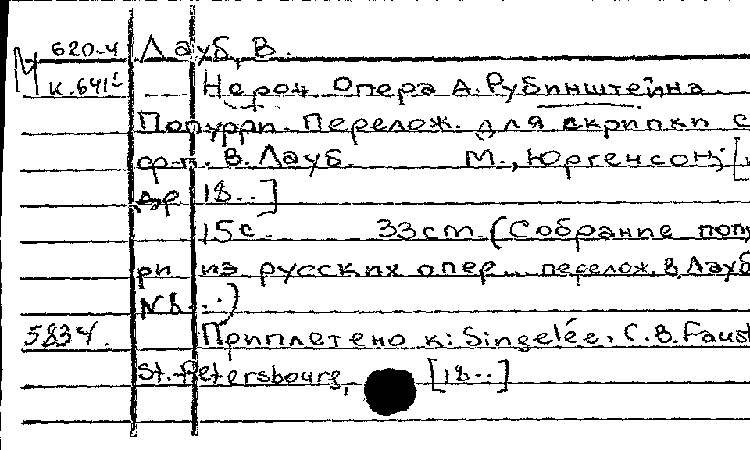 620-4 Лауб, В.
К.641
Нерон. Опера А. Рубинштейна
Попурри. Перелож. для скрипки с
ф-п. В. Лауб. М., Юргенсон; [и
др 18..]
15 с. 33 cm. (Собрание попу
ри из русских опер... перелож. В. Лауб
№6...)
5834. Приплетено к: Singelée, C.B. Faust
St.-Petersbourg, [18..]